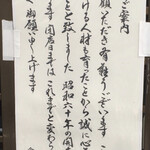 ご案内
願いただき有難うございます こ
ける人材も育ったことから誠に心
こと致しました 昭和六十年の開
ます 閉店まではこれまでと変わら
御願い申し上げます